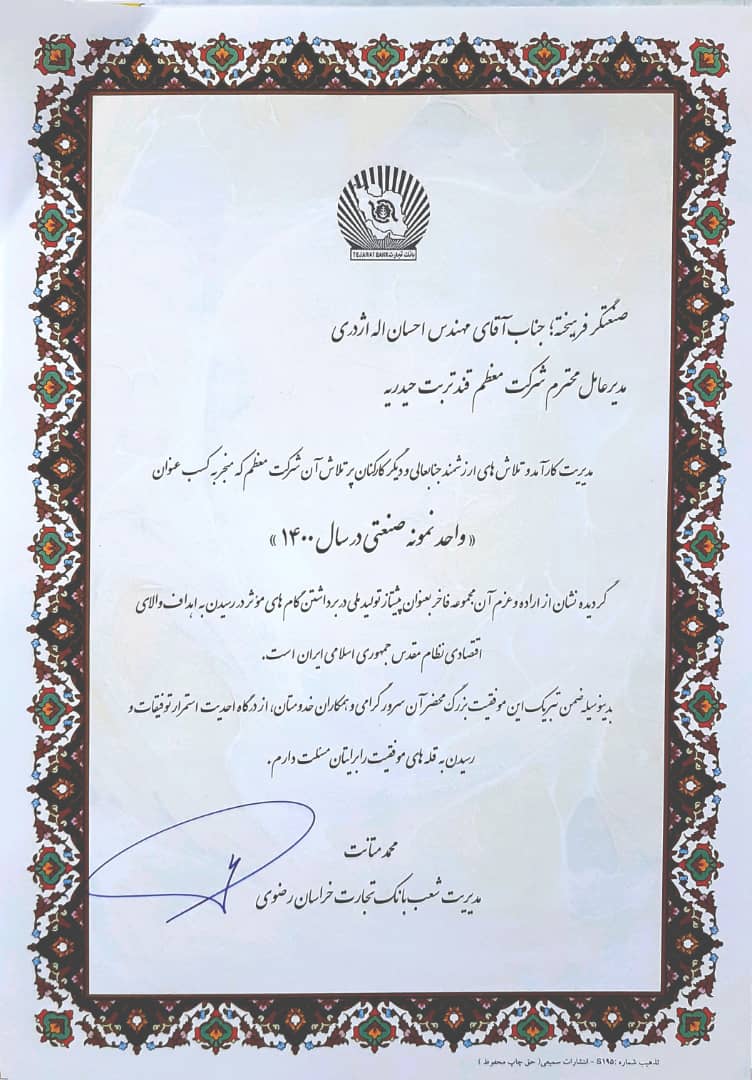 بانک تجارت TEJARAT BANK
صنعتگر فرهیخته؛ جناب آقای مهندس احسان اله اژدری
مدیرعامل محترم شرکت معظم قند تربت حیدریه
مدیریت کارآمد و تلاش های ارزشمند جنابعالی و دیگر کارکنان پر تلاش آن شرکت معظم که منجر به کسب عنوان
« واحد نمونه صنعتی در سال ۱۴۰۰ »
گردیده نشان از اراده و عزم آن مجموعه فاخر بعنوان پیشتاز تولید ملی در برداشتن گام های مؤثر در رسیدن به اهداف والای
اقتصادی نظام مقدس جمهوری اسلامی ایران است.
بدینوسیله ضمن تبریک این موفقیت بزرگ محضر آن سرور گرامی و همکاران خدومتان، از درگاه احدیت استمرار توفیقات و
رسیدن به قله های موفقیت را برایتان مسئلت دارم.
محمد متانت
مدیریت شعب بانک تجارت خراسان رضوی
تذهیب شماره :S۱۹۵ - انتشارات سمیعی( حق چاپ محفوظ )